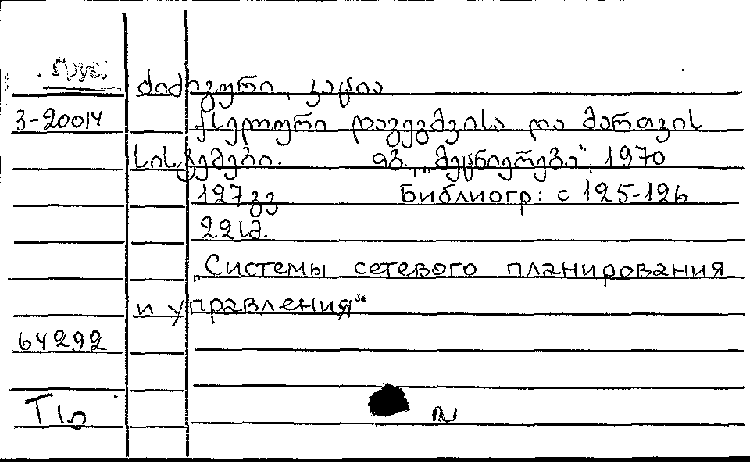 ძიძიგური, კაცია
3-20014 ქსელური დაგეგმვისა და მართვის
სისტემები. თბ. „მეცნიერება", 1970
127 გვ Библиогр: с 125-126
22სმ.
„Системы сетевого планирования
и управления"
64292